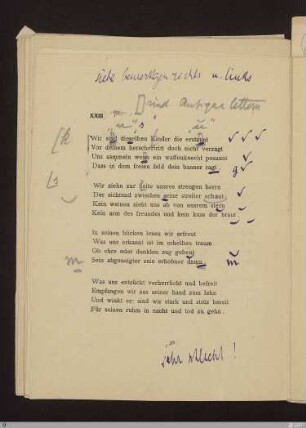 siehe bemerkungen rechts u. links
sind Antiqua lettern
XXIII
Wir sind dieselben Kinder die erstaunt
Vor deinem herrschertritt doch nicht verzagt
Uns sammeln wenn ein waffenknecht posaunt
Dass in dem freien feld dein banner ragt
Wir ziehn zur seite unsres strengen herrn
Der sichtend zwischen seine streiter schaut
Kein weinen zieht uns ab von unsrem stern
Kein arm des freundes und kein kuss der braut
In seinen blicken lesen wir erfreut
Was uns erkannt ist im erhellten traum
Ob ehre oder dunklen zug gebeut
Sein abgeneigter sein erhobner daum
Was uns entzückt verherrlicht und befreit
Empfangen wir aus seiner hand zum lehn
Und winkt er: sind wir stark und stolz bereit
Für seinen ruhm in nacht und tod zu gehn.
sehr schlecht!